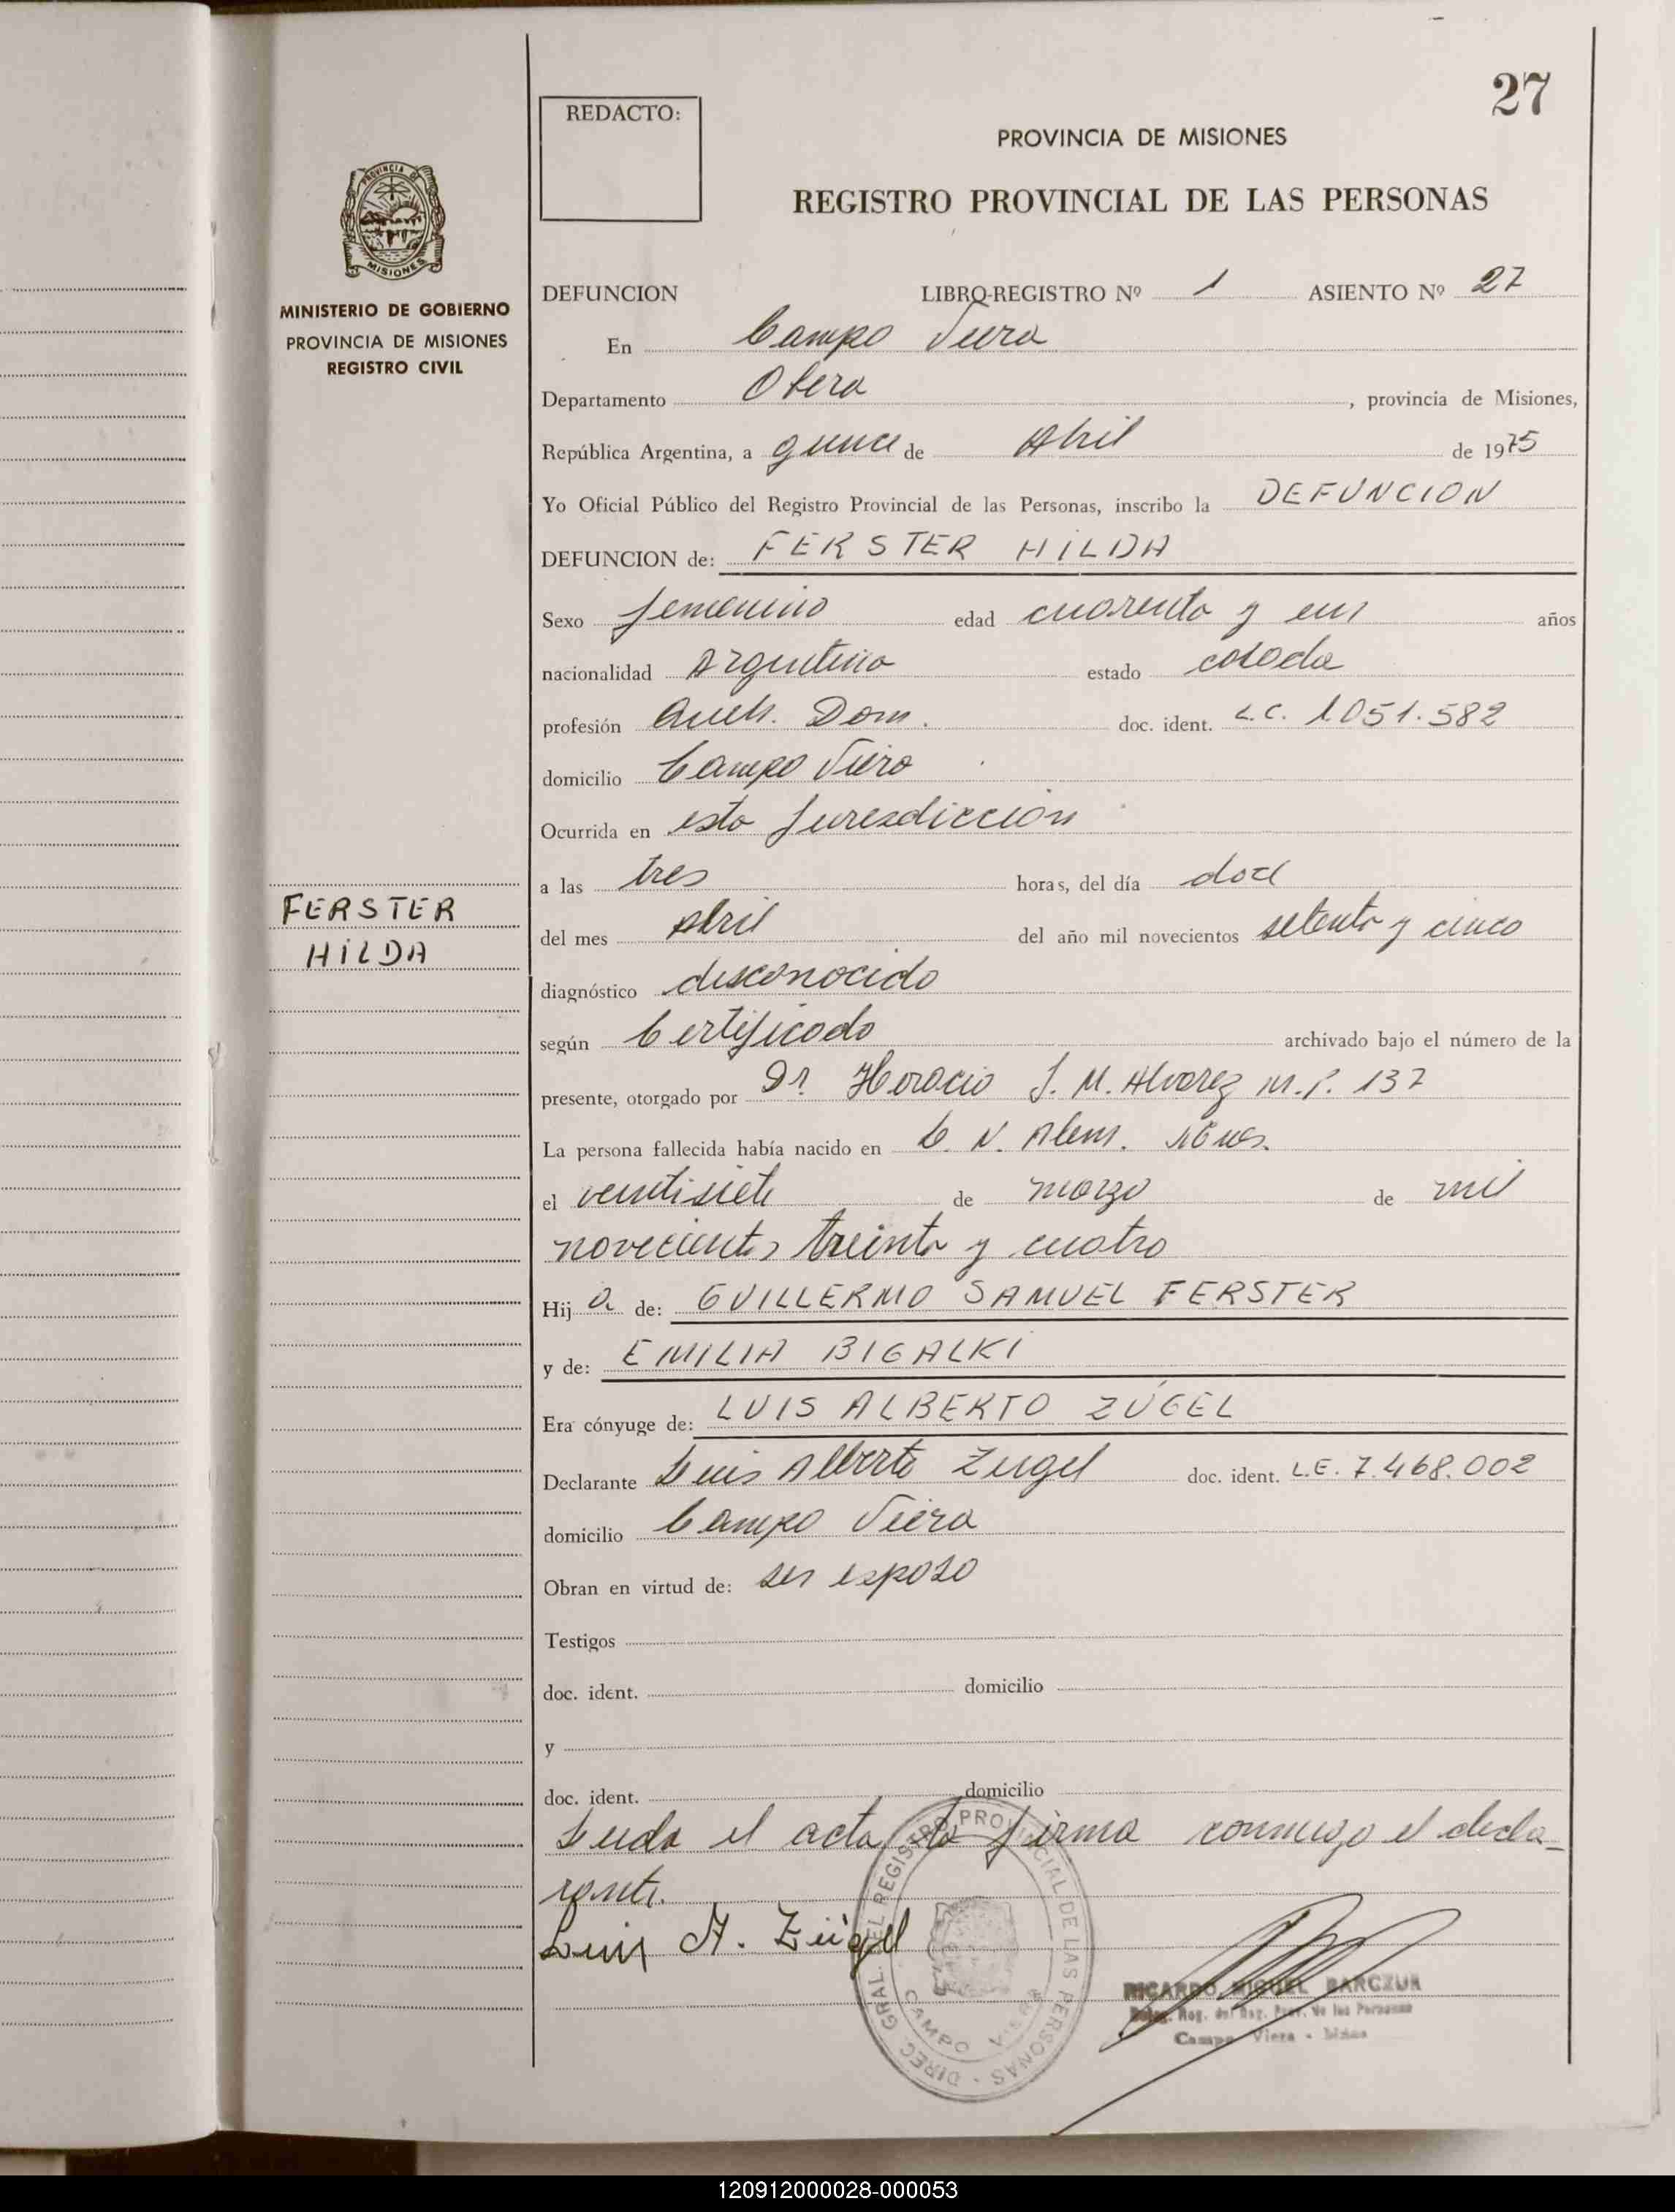 27
REDACTO:
PROVINCIA DE MISIONES
REGISTRO PROVINCIAL DE LAS PERSONAS
PROVINCIA DE
MISIONES
MINISTERIO DE GOBIERNO
PROVINCIA DE MISIONES
REGISTRO CIVIL
DEFUNCION LIBRO-REGISTRO Nº 1 ASIENTO Nº 27
En Campo Viera
Departamento Obera, provincia de Misiones,
República Argentina, a quince de Abril de 1975
Yo Oficial Público del Registro Provincial de las Personas, inscribo la DEFUNCION
DEFUNCION de: FERSTER HILDA
Sexo femenino edad cuarenta y un años
nacionalidad Argentina estado casada
profesión Queh. Dom. doc. ident. L.C. 1.051.582
domicilio Campo Viera
Ocurrida en esta Juresdiccion
a las tres horas, del día doce
FERSTER
HILDA
del mes Abril del año mil novecientos setenta y cinco
diagnóstico desconocido
según Certificado archivado bajo el número de la
presente, otorgado por Dr. Horacio J. M. Alvarez M.P. 137
La persona fallecida había nacido en L. N. Alem.
el veintisiete de marzo de mil
novecientos treinta y cuatro
Hij a de: GUILLERMO SAMUEL FERSTER
y de: EMILIA BIGALKI
Era cónyuge de: LUIS ALBERTO ZÚGEL
Declarante Luis Alberto Zugel doc. ident. L.E. 7.468.002
domicilio Campo Viera
Obran en virtud de: ser esposo
Testigos
doc. ident. domicilio
y
doc. ident. domicilio
Leida el acta la firma conmigo el decla-
rante.
Luis A. Zügel
DIREC. GRAL. DEL REGISTRO PROVINCIAL DE LAS PERSONAS
CAMPO VIERA
RICARDO MIGUEL BARCZUK
Deleg. Reg. del Reg. Prov. de las Personas
Campo Viera - Mnes
120912000028-000053